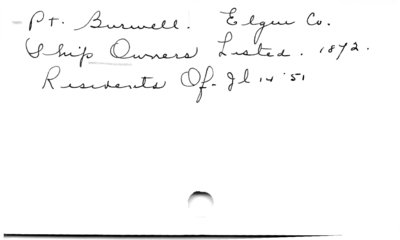 Pt. Burwell. Elgin Co.
Ship Owners Listed. 1872.
Residents Of. Jl 14 '51